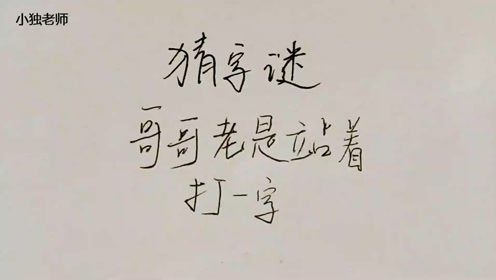 小独老师
猜字谜
哥哥老是站着
打一字